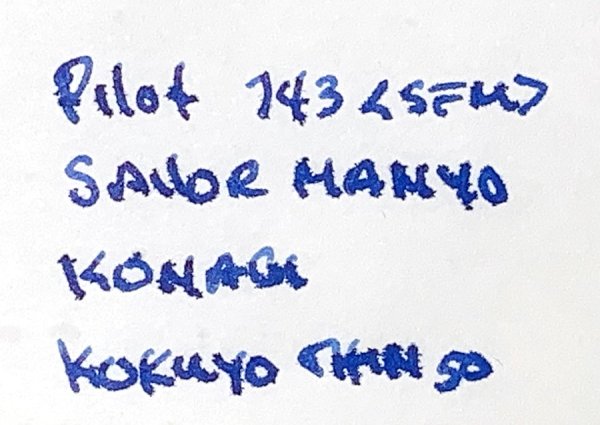 Pilot 743 <SFM>
SAILOR MANYO
KONAGI
KOKUYO THIN 50